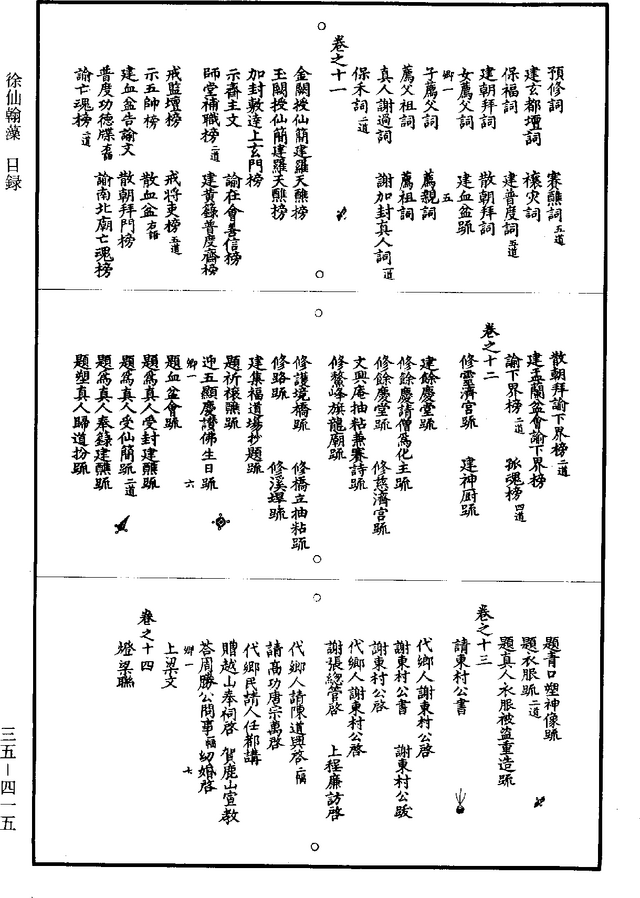 預修詞　賽醮詞五道
建玄都壇詞　禳灾詞
保福詞　建普度詞五道
建朝拜詞　散朝拜詞
女薦父詞　建血盆疏
卿一　五
子薦父詞　薦親詞
薦父祖詞　薦祖詞
真人謝過詞　謝加封真人詞一道
保禾詞二道
卷之十一
金闕授仙簡建羅天醮榜
玉闕授仙簡建羅天醮榜
加封敷達上玄門榜
示齋主文　諭在會善信榜
師堂補職榜二道　建黃籙普度齋榜
戒監壇榜　戒將吏榜五道
示五帥榜　散血盆右語
建血盆告諭文　散朝拜門榜
普度功德牒右語　諭南北廟亡魂榜
諭亡魂榜二道
散朝拜諭下界榜二道
建盂蘭盆會諭下界榜
諭下界榜二道　孤魂榜四道
卷之十二
修靈濟宮疏　建神厨疏
建餘慶堂疏
修餘慶請僧為化主疏
修餘慶堂疏　修慈濟宮疏
文興庵抽粘兼賽詩疏
修鰲峰旗龍廟疏
修護境橋疏　修橋立抽粘疏
修路疏　修溪墠疏
建集福道場抄題疏
題祈禳醮疏
迎五顯慶讚佛生日疏
卿一　六
題血盆會疏
題為真人受封建醮疏
題為真人受仙簡疏二道
題為真人奉錄建醮疏
題塑真人歸道扮疏
題青口塑神像疏
題衣服疏二道
題真人衣服被盜重造疏
卷之十三
請東村公書
代鄉人謝東村公啓
謝東村公書　謝東村公跋
謝東村公啓
代鄉人謝東村公啓
謝張總管啓　上程廉訪啓
代鄉人請陳道興啓二幅
請高功唐宗萬啓
代鄉民請人任都講
贈越山奉祠啓　賀鹿山宣教
荅周勝公問事一幅　幼婚啓
卿一　七
上梁文
卷之十四
燈梁聯
徐仙翰藻　目録
三五－四一五